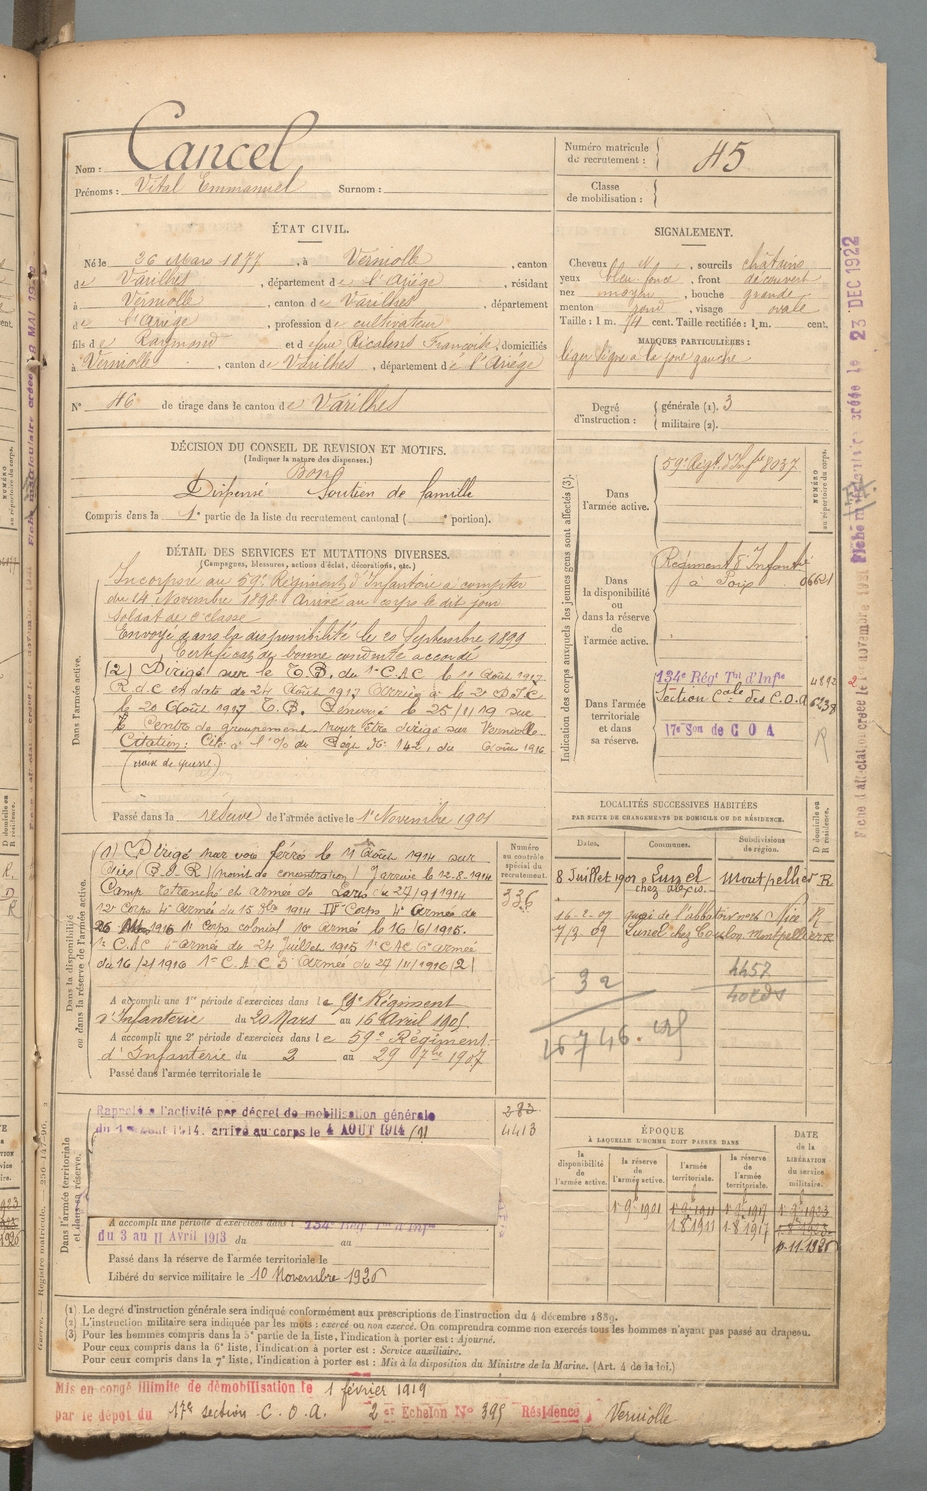 Nom : Cancel
Prénoms : Vital Emmanuel Surnom :
Numéro matricule de recrutement : 45
Classe de mobilisation :
ÉTAT CIVIL.
Né le 26 Mars 1877, à Verniolle, canton
de Varilhes, département de l'Ariège, résidant
à Verniolle, canton de Varilhes, département
de l'Ariège, profession de cultivateur
fils de Raymond et de feue Ricalens Françoise, domiciliés
à Verniolle, canton de Varilhes, département de l'Ariège
N° 46 de tirage dans le canton de Varilhes
SIGNALEMENT.
Cheveux , sourcils châtains
yeux bleu foncé, front découvert
nez moyen, bouche grande
menton rond, visage ovale
Taille : 1 m. 74 cent. Taille rectifiée : 1 m. cent.
MARQUES PARTICULIÈRES :
léger signe à la joue gauche
Degré d'instruction : générale (1). 3
militaire (2).
DÉCISION DU CONSEIL DE REVISION ET MOTIFS.
(Indiquer la nature des dispenses.)
Bon
Dispensé Soutien de famille
Compris dans la 1e partie de la liste du recrutement cantonal ( e portion).
DÉTAIL DES SERVICES ET MUTATIONS DIVERSES.
(Campagnes, blessures, actions d'éclat, décorations, etc.)
Dans l'armée active.
Incorporé au 59e Régiment d'Infanterie à compter
du 14 Novembre 1898. Arrivé au corps le dit jour
Soldat de 2e classe
Envoyé dans la disponibilité le 20 Septembre 1899
Certificat de bonne conduite accordé
(2) Dirigé sur le T.B. du 1er C.A.C le 11 Août 1917
R.d.C en date de 24 Août 1917
le 20 Août 1917 T.B. Renvoyé le 25/1/19 sur
le Centre de groupement pour être dirigé sur Verniolle
Citation : Cité à l'O/ du Régt N° 142, du Août 1916
(croix de guerre.)
Passé dans la réserve de l'armée active le 1er Novembre 1901
Indication des corps auxquels les jeunes gens sont affectés (3).
NUMÉRO au répertoire du corps.
Dans l'armée active.
59e Régt d'Infie 8037
Dans la disponibilité ou dans la réserve de l'armée active.
Régiment d'Infanterie
à Foix 06621
Dans l'armée territoriale et dans sa réserve.
134e Régt Tal d'Infie 4892
Section Cale des C.O.A 6238
17e Son de C O A
LOCALITÉS SUCCESSIVES HABITÉES
PAR SUITE DE CHANGEMENTS DE DOMICILE OU DE RÉSIDENCE.
Dates. Communes. Subdivisions de région. D domicile ou R résidence.
8 Juillet 1901 Lunel Montpellier R
chez Alexis
16-2-07 quai de l'abbatoir n° 26 Nice R
7/3 09 Lunel chez Coulon Montpellier R
32
4457
Dans la disponibilité ou dans la réserve de l'armée active.
Numéro au contrôle spécial du recrutement.
336
(1) Dirigé par voie ferrée le 11 Août 1914 sur
(point de concentration) J arrivé le 12.8.1914
Camp retranché et armée de Paris du 27/9 1914
12e Corps 4e Armée du 15 1914 IVe Corps 4e Armée de
1915 1er Corps colonial 10e armée le 16/6/1915.
1er C.A.C armée de 24 Juillet 1915 1er C.A.C 6e armée
du 16/2/1916 1er C.A.C 3e Armée du 27/11/1916 (2)
A accompli une 1re période d'exercices dans le 59e Régiment
d'Infanterie du 20 Mars au 16 Avril 1905
A accompli une 2e période d'exercices dans le 59e Régiment
d'Infanterie du 2 au 29 7bre 1907
Passé dans l'armée territoriale le
Dans l'armée territoriale et dans sa réserve.
Rappelé à l'activité par décret de mobilisation générale
du 1er Août 1914. arrivé au corps le 4 AOUT 1914 (1)
283
4413
A accompli une période d'exercices dans l 134e Régt Tal d'Infie
du 3 au 11 Avril 1913 du au
Passé dans la réserve de l'armée territoriale le
Libéré du service militaire le 10 Novembre 1926
ÉPOQUE
À LAQUELLE L'HOMME DOIT PASSER DANS
la disponibilité de l'armée active. la réserve de l'armée active. l'armée territoriale. la réserve de l'armée territoriale.
DATE de la LIBÉRATION du service militaire.
1er 9bre 1901 1er 9bre 1911 1er 9bre 1917 1er 9bre 1923
1 8 1911 1 8 1917
10.11.1926
(1) Le degré d'instruction générale sera indiqué conformément aux prescriptions de l'instruction du 4 décembre 1889.
(2) L'instruction militaire sera indiquée par les mots : exercé ou non exercé. On comprendra comme non exercés tous les hommes n'ayant pas passé au drapeau.
(3) Pour les hommes compris dans la 5e partie de la liste, l'indication à porter est : Ajourné.
Pour ceux compris dans la 6e liste, l'indication à porter est : Service auxiliaire.
Pour ceux compris dans la 7e liste, l'indication à porter est : Mis à la disposition du Ministre de la Marine. (Art. 4 de la loi.)
Mis en congé illimité de démobilisation le 1 février 1919
par le dépôt du 17e section C.O.A. 2 er Echelon N° 395 Résidence Verniolle
Fiche matriculaire créée le 23 DEC 1922